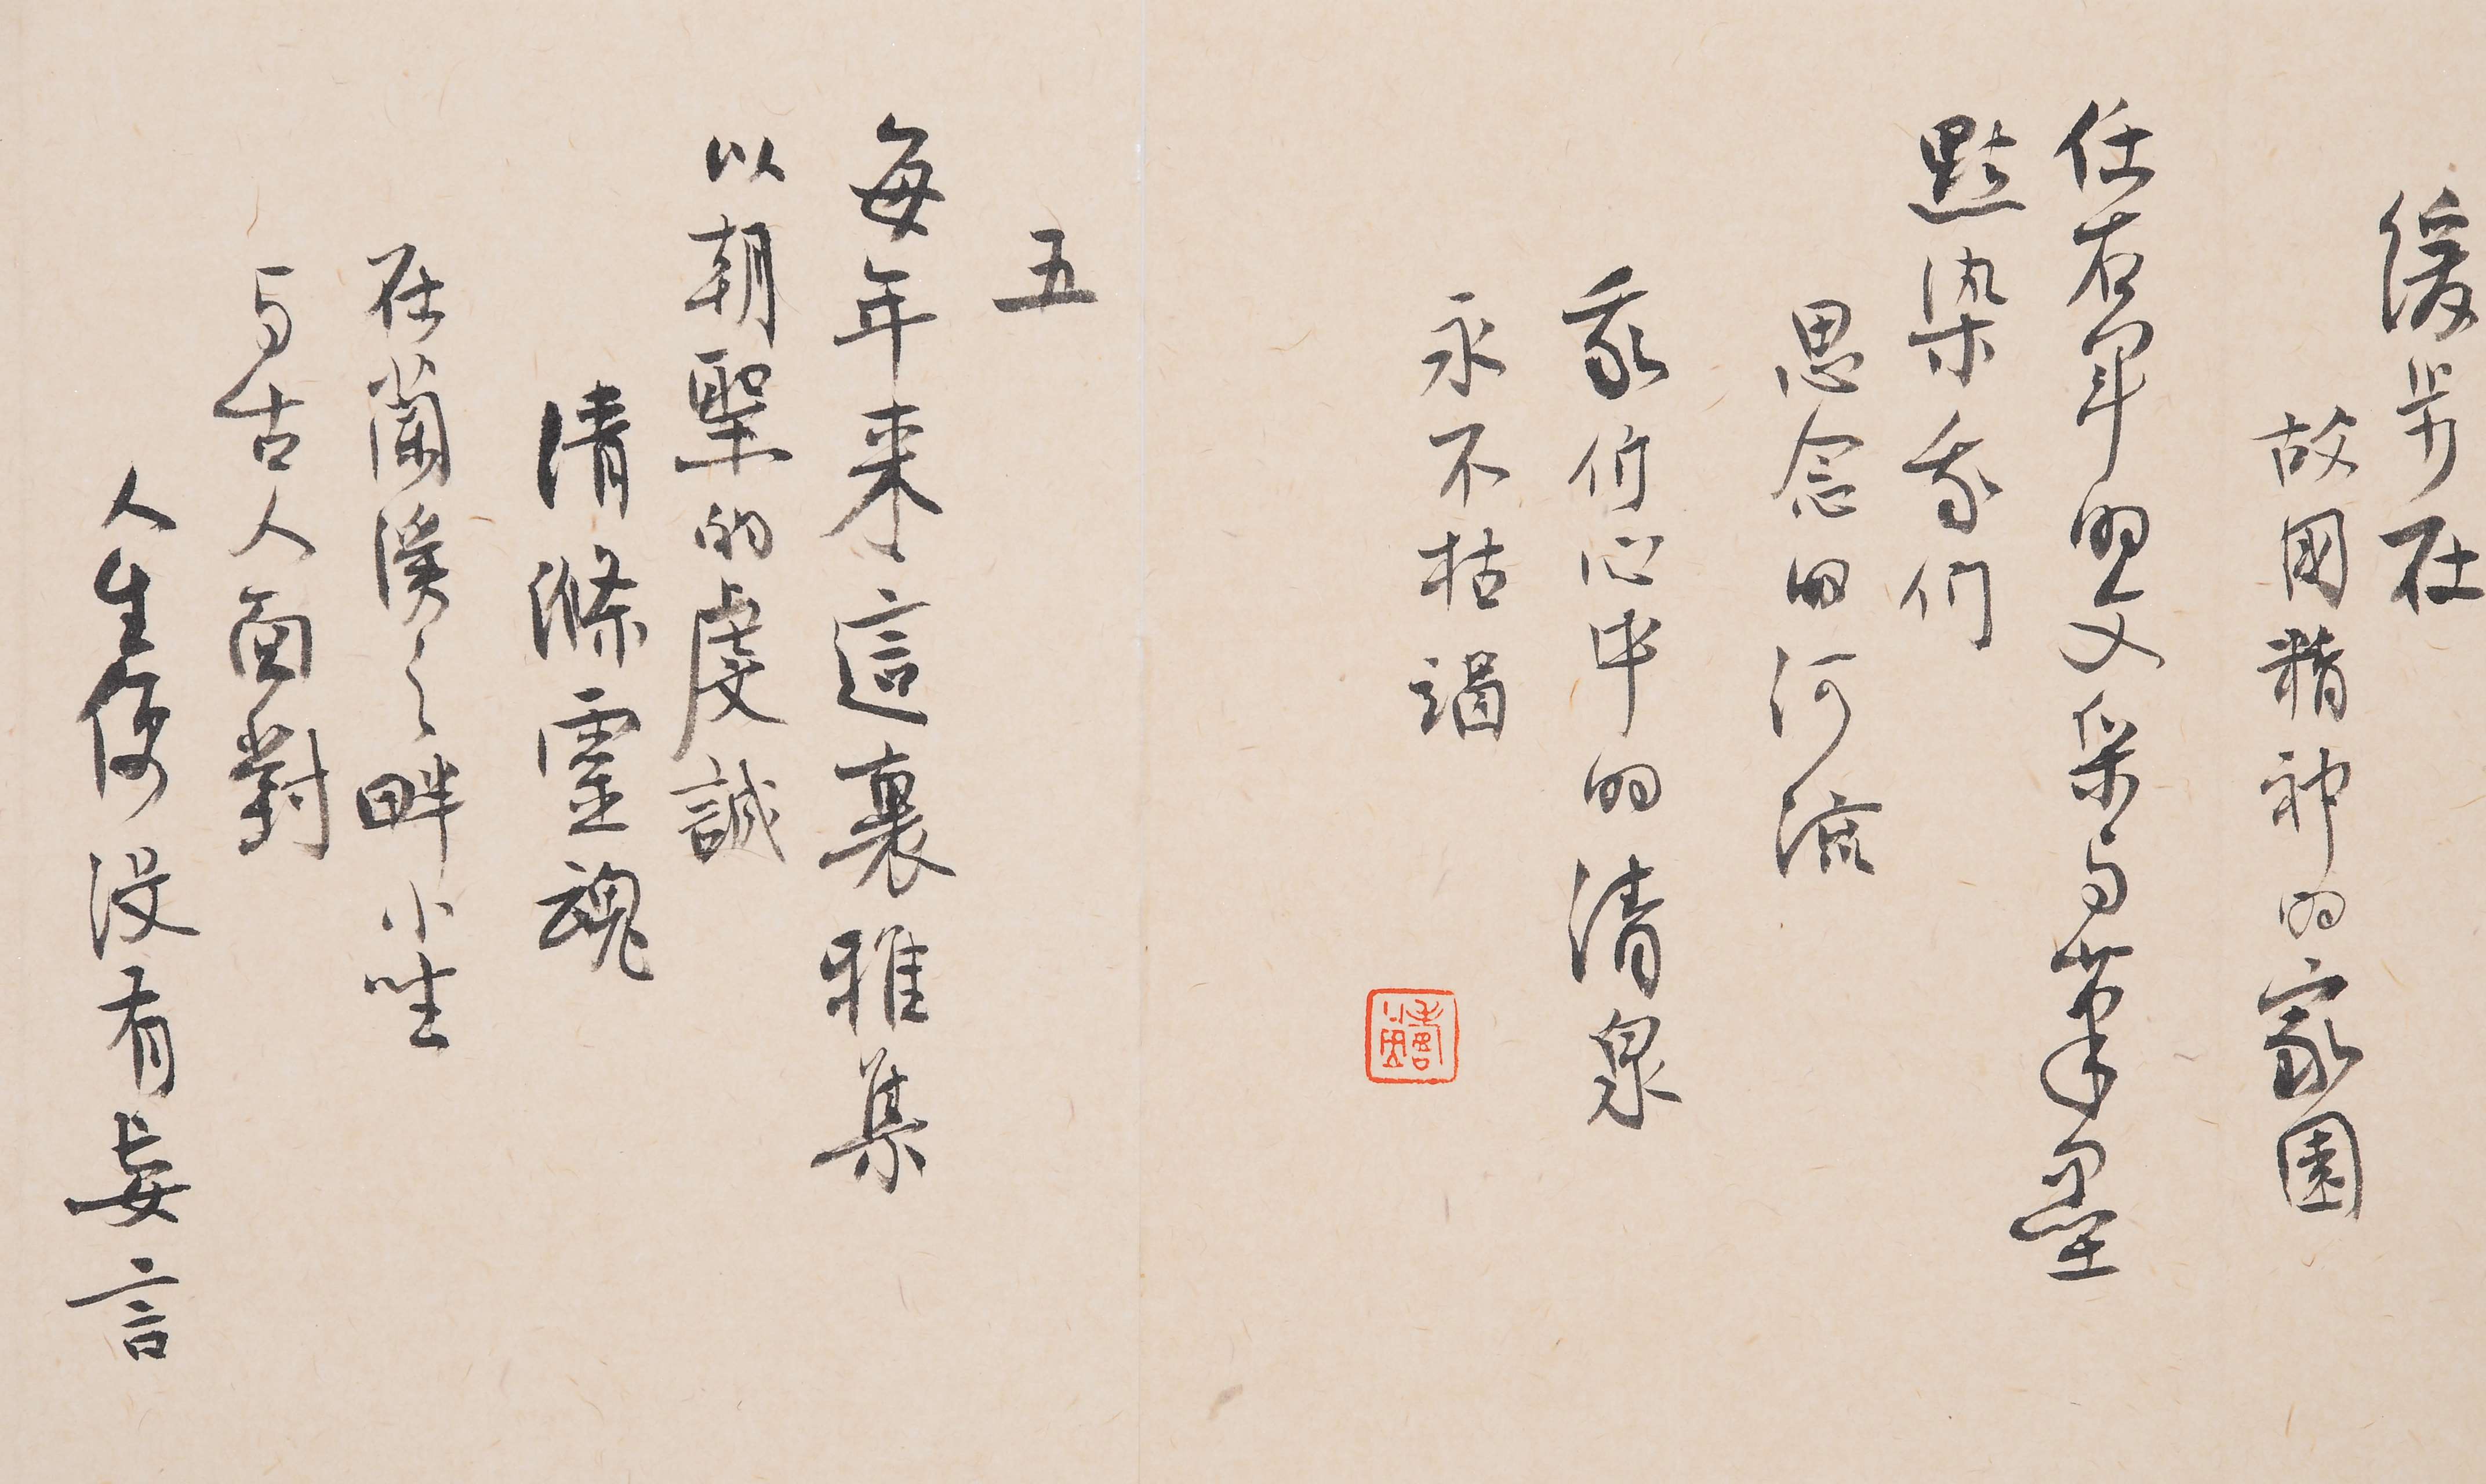 緩步在
故国精神的家園
任右軍的文采与筆墨
點染我们
思念的河流
我们心中的清泉
永不枯竭
五
每年来這裏雅集
以朝聖的虔誠
清滌靈魂
在蘭溪之畔小坐
与古人面對
人生便没有妄言